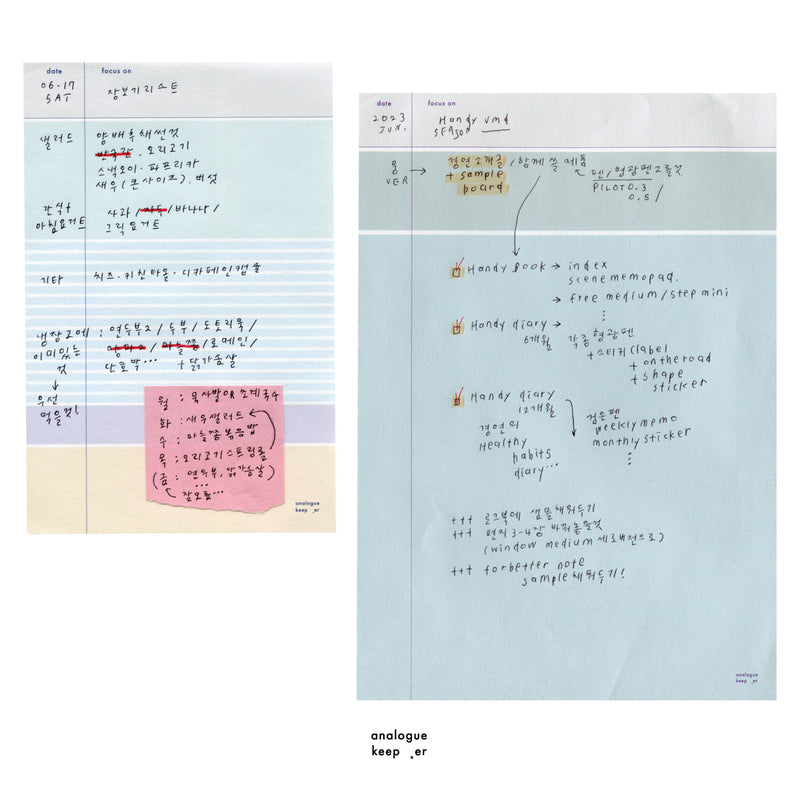 date focus on
06.17
SAT
장보기리스트
샐러드
양배추채썬것
오리고기
스낵오이 · 파프리카
새우(큰사이즈) · 버섯
간식+
아침요거트
사과 / 자두 / 바나나 /
그릭요거트
기타
치즈 · 키친타올 · 디카페인캡슐
냉장고에
이미있는
것
↓
우선
먹을것!
: 연두부2 / 두부 / 도토리묵 /
양파2 / 마늘쫑 / 로메인 /
단호박… + 닭가슴살
월 : 묵사발OR초계국수
화 : 새우샐러드
수 : 마늘쫑볶음밥
목 : 오리고기스프링롤
(금 : 연두부, 닭가슴살)
…
잘모름…
analogue
keep er
date focus on
2023
JUN.
Handy vmd
SEASON
웅
VER →
경연소개글 / 함께 쓸 제품
+ sample
board
펜/형광펜고를것
PILOT 0.3
0.5 /
Handy Book → index
scenememopad.
→ free medium / step mini
⋮
Handy diary →
6개월
각종형광펜
+ 스티커(label
+ ontheroad
+ shape
sticker
Handy diary
12개월
경연의
Healthy
habits
diary…
검은펜
weeklymemo
monthlysticker
⋮
+++ 로그북에 샘플채워두기
+++ 편지 3-4장 바꿔놓을것
(window medium 세로버전으로)
+++ forbetter note
sample채워두기!
analogue
keep er
analogue
keep er